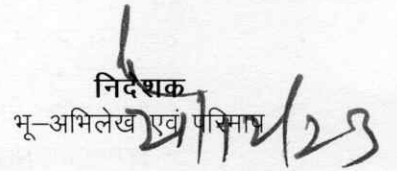 निदेशक
भू–अभिलेख एवं परिमाप